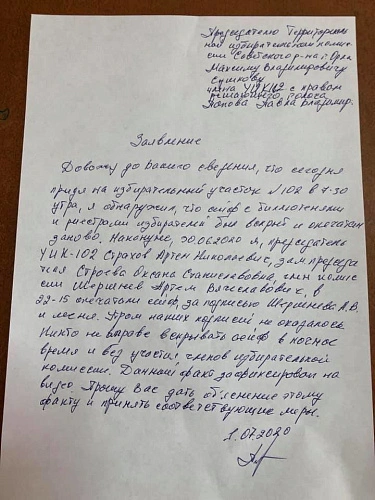 Председателю Территориаль
ной избирательной комис-
сии Советского р-на г Орла
Максиму Владимировичу
Сушкову
члена УИК 102 с правом
решающего голоса
Попова Павла Владимир.
Заявление
Довожу до Вашего сведения, что сегодня
придя на избирательный участок N 102 в 7-30
утра, я обнаружил, что сейф с бюллетенями
и реестрами избирателей был вскрыт и опечатан
заново. Накануне, 30.06.2020 г, председатель
УИК-102 Страхов Артем Николаевич, зам председа
теля Строева Оксана Станиславовна, член комис
сии Шершнев Артем Вячеславович, в
22-15 опечатали сейф, за подписью Шершнева А.В
и моей. Утром наших подписей не оказалось.
Никто не вправе вскрывать сейф в ночное
время и без участия членов избирательной
комиссии. Данный факт зафиксирован на
видео Прошу Вас дать объяснение этому
факту и принять соответствующие меры.
1.07.2020